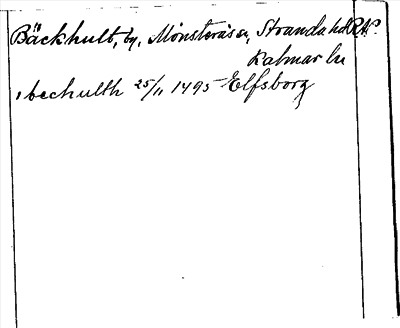 Bäckhult, by, Mönsterås sn, Stranda hd RAp
Kalmar ln
, bechulth 25/11 1495 Elfsborg